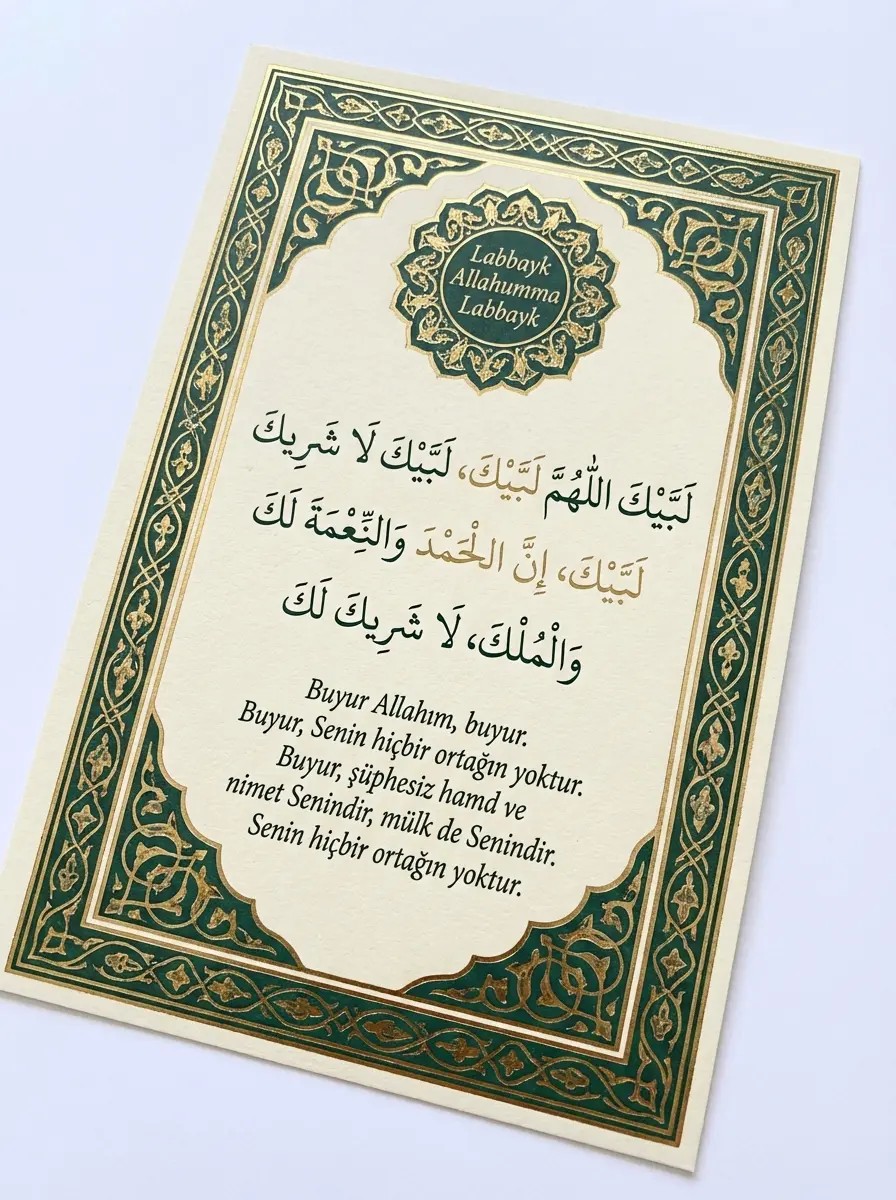 Labbayk
Allahumma
Labbayk
لَبَّيْكَ اللّٰهُمَّ لَبَّيْكَ، لَبَّيْكَ لَا شَرِيكَ
لَبَّيْكَ، إِنَّ الْحَمْدَ وَالنِّعْمَةَ لَكَ
وَالْمُلْكَ، لَا شَرِيكَ لَكَ
Buyur Allahım, buyur.
Buyur, Senin hiçbir ortağın yoktur.
Buyur, şüphesiz hamd ve
nimet Senindir, mülk de Senindir.
Senin hiçbir ortağın yoktur.